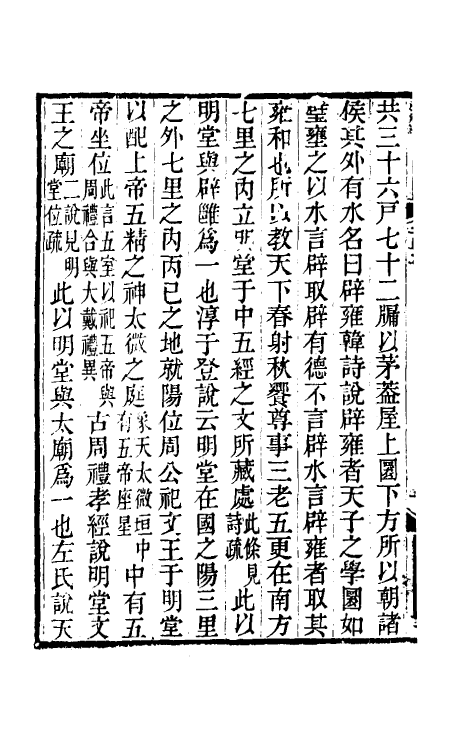 共三十六戸七十二牖以茅葢屋上圜下方所以朝諸
侯其外有水名曰辟雍韓詩說辟雍者天子之學圜如
璧壅之以水言辟取辟有德不言辟水言辟雍者取其
雍和也所以教天下春射秋饗尊事三老五更在南方
七里之內立明堂于中五經之文所藏處此條見詩疏此以
明堂與辟雝爲一也淳于登說云明堂在國之陽三里
之外七里之內丙巳之地就陽位周公祀文王于明堂
以配上帝五精之神太微之庭象天太微垣中有五帝座星中有五
帝坐位此言五室以祀五帝與周禮合與大戴禮異古周禮孝經說明堂文
王之廟二說見明堂位疏此以明堂與太廟爲一也左氏說天